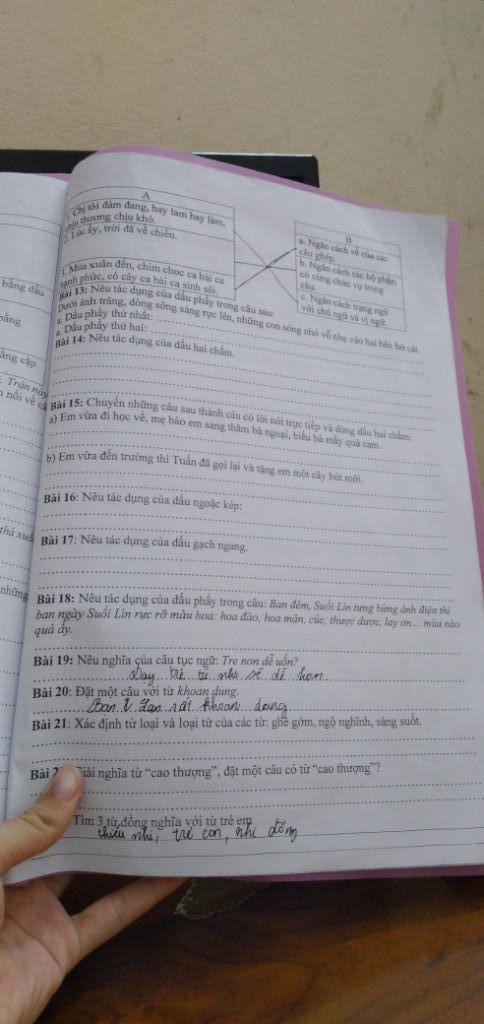 A
1. Chị tôi đảm đang, hay lam hay làm,
chịu thương chịu khó.
2. Lúc ấy, trời đã về chiều.
3. Mùa xuân đến, chim chóc ca bài ca
hạnh phúc, cỏ cây ca bài ca sinh sôi.
B
a. Ngăn cách vế của các
câu ghép.
b. Ngăn cách các bộ phận
có cùng chức vụ trong
câu.
c. Ngăn cách trạng ngữ
với chủ ngữ và vị ngữ.
Bài 13: Nêu tác dụng của dấu phẩy trong câu sau:
Dưới ánh trăng, dòng sông sáng rực lên, những con sóng nhỏ vỗ nhẹ vào hai bên bờ cát.
a. Dấu phẩy thứ nhất:
a. Dấu phẩy thứ hai:
Bài 14: Nêu tác dụng của dấu hai chấm.
Bài 15: Chuyển những câu sau thành câu có lời nói trực tiếp và dùng dấu hai chấm:
a) Em vừa đi học về, mẹ bảo em sang thăm bà ngoại, biếu bà mấy quả cam.
b) Em vừa đến trường thì Tuấn đã gọi lại và tặng em một cây bút mới.
Bài 16: Nêu tác dụng của dấu ngoặc kép:
Bài 17: Nêu tác dụng của dấu gạch ngang.
Bài 18: Nêu tác dụng của dấu phẩy trong câu: Ban đêm, Suối Lìn tưng bừng ánh điện thì
ban ngày Suối Lìn rực rỡ màu hoa: hoa đào, hoa mận, cúc, thược dược, lay ơn... mùa nào
quả ấy.
Bài 19: Nêu nghĩa của câu tục ngữ: Tre non dễ uốn?
Dạy trẻ từ nhỏ sẽ dễ hơn
Bài 20: Đặt một câu với từ khoan dung.
Lan rất khoan dung
Bài 21: Xác định từ loại và loại từ của các từ: ghê gớm, ngộ nghĩnh, sáng suốt.
Giải nghĩa từ “cao thượng”, đặt một câu có từ “cao thượng”?
Tìm 3 từ đồng nghĩa với từ trẻ em
thiếu nhi, trẻ con, nhi đồng
bằng dấu
Trận này
nói về
thả
những